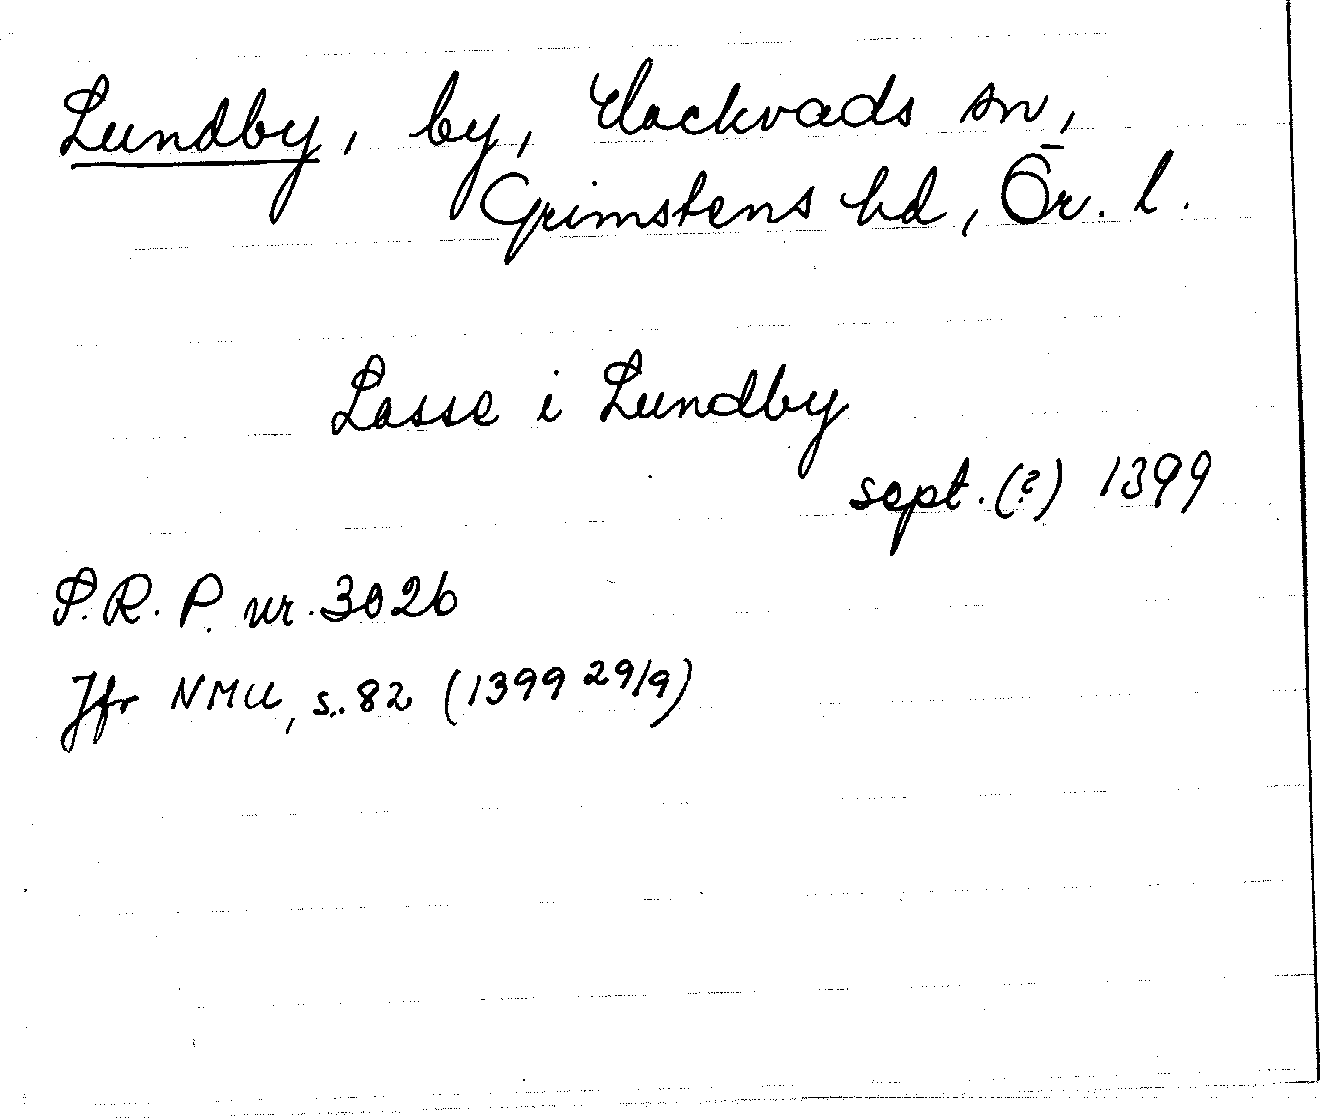 Lundby, by, Hackvads sn,
Grimstens hd, Ör. l.
Lasse i Lundby
sept. (?) 1399
S.R.P. nr. 3026
Jfr NMU, s. 82 (1399 29/9)